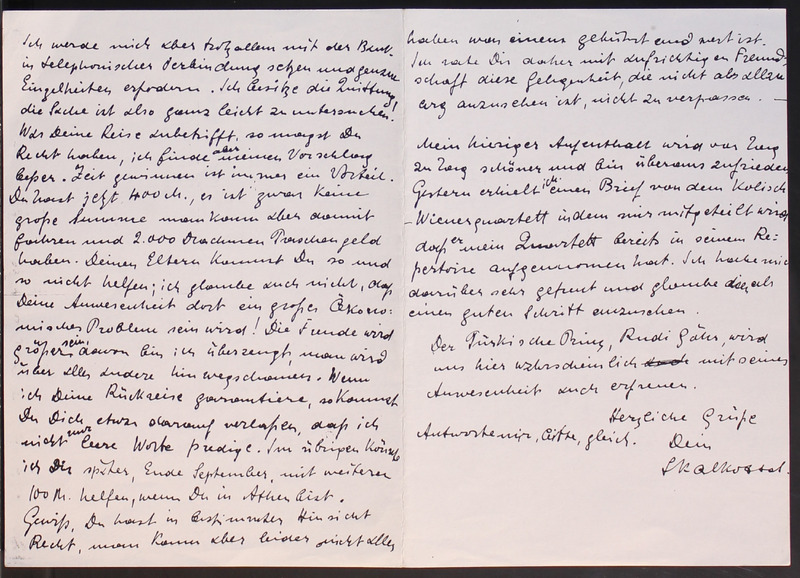 Ich werde mich aber trotz allem mit der Bank
in telephonischer Verbindung setzen und genaue
Einzelheiten erfordern. Ich besitze die Quittung!
die Sache ist also ganz leicht zu untersuchen.
Was Deine Reise anbetrifft, so magst Du
Recht haben, ich finde aber meinen Vorschlag
besser. Zeit gewinnen ist immer ein Vorteil.
Du hast jetzt 400 M., es ist zwar keine
große Summe man kann aber damit
fahren und 2.000 Drachmen Taschengeld
haben. Deinen Eltern kannst Du so und
so nicht helfen; ich glaube auch nicht, daß
Deine Anwesenheit dort ein großes Ökono-
misches Problem sein wird! Die Freude wird
größer sein, davon bin ich überzeugt, man wird
über alles andere hinwegschauen. Wenn
ich Deine Rückreise garantiere, so kannst
Du Dich etwa darauf verlaßen, daß ich
nicht nur leere Worte predige. Im übrigen könnte
ich Dir später, Ende September, mit weiteren
100 M. helfen, wenn Du in Athen bist.
Gewiß, Du hast in bestimmter Hinsicht
Recht, man kann aber leider nicht alles
haben was einem gebührt und wert ist.
Ich rate Dir daher mit aufrichtigen Freund-
schaft diese Gelegenheit, die nicht als allzu
arg anzusehen ist, nicht zu verpassen. —
Mein hiesiger Aufenthalt wird von Tag
zu Tag schöner und bin überaus zufrieden
Gestern erhielt ich einen Brief von dem Kolisch
-Wienerquartett indem mir mitgeteilt wird
daß er mein Quartett bereits in seinem Re-
pertoire aufgenommen hat. Ich habe mich
darüber sehr gefreut und glaube das als
einen guten Schritt anzusehen.
Der Türkische Prinz, Rudi Göhr, wird
uns hier wahrscheinlich mit seiner
Anwesenheit auch erfreuen.
Herzliche Grüße
Antworte mir, bitte, gleich. Dein
Skalkottas.